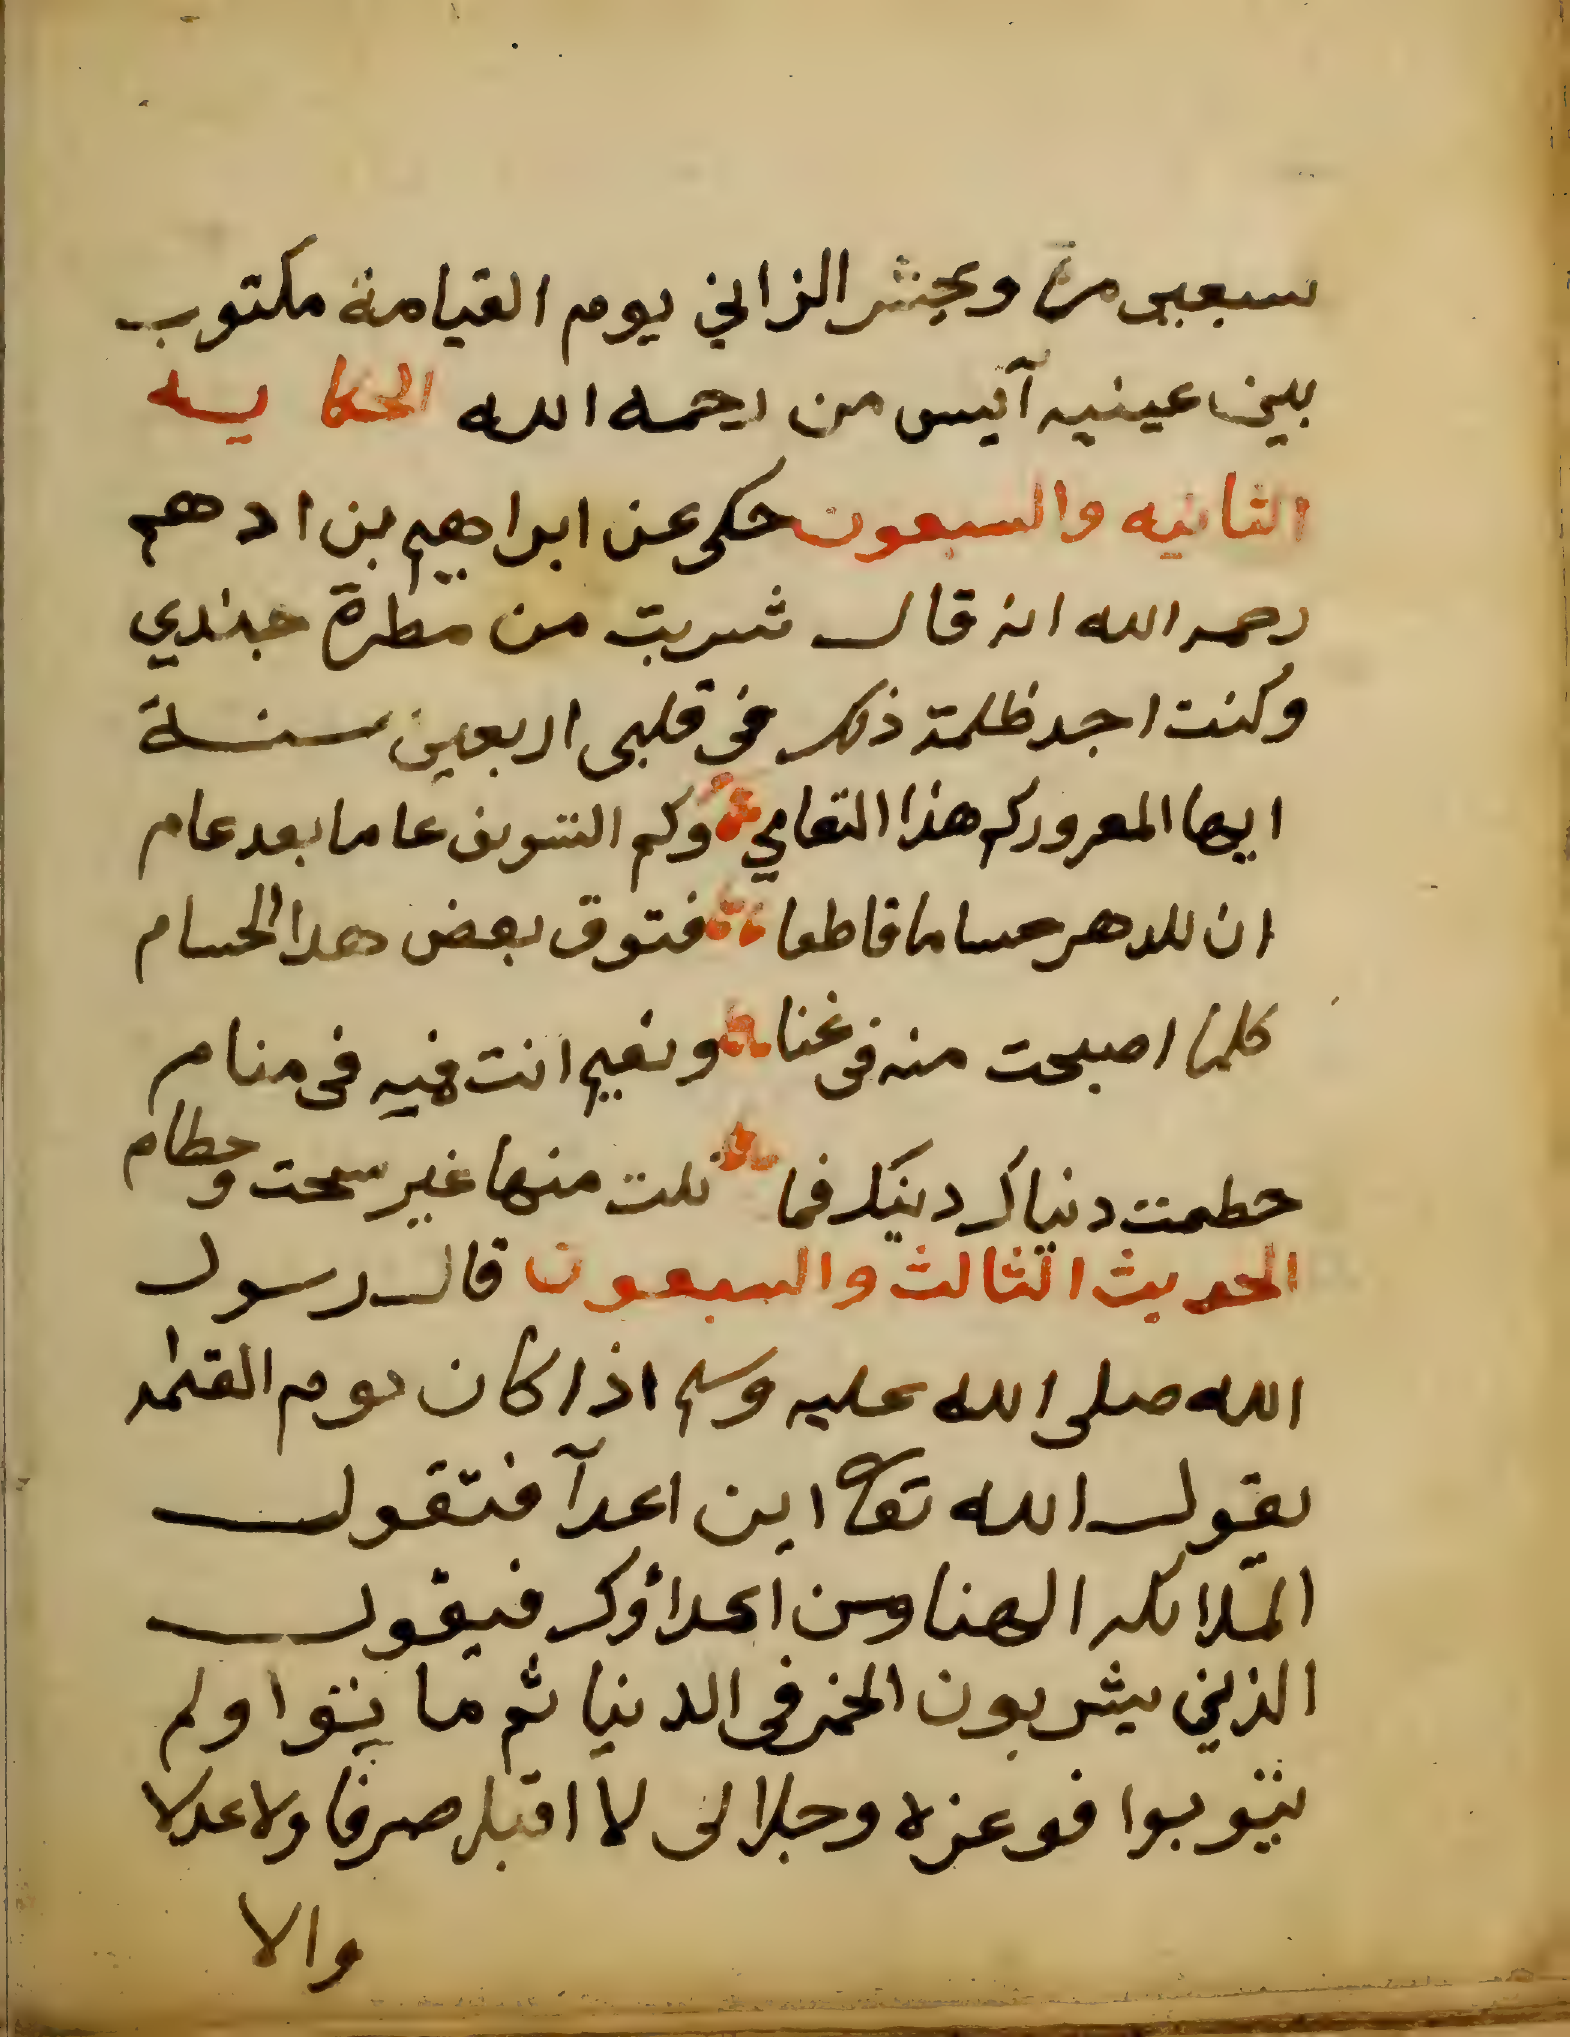 سبعين مرة ويحشر الزاني يوم القيامة مكتوب
بين عينيه آيس من رحمه الله الحكايه
الثانيه والسبعون حكى عن ابراهيم بن ادهم
رحمه الله انه قال شربت من مطرة جندي
وكنت اجد ظلمة ذلك فى قلبى اربعين سنة
ايها المغرور كم هذا التعامي وكم التسويف عاما بعد عام
ان للدهر حساما قاطعا فتوق بعض هذا الحسام
كلما اصبحت منه فى غنا ونعيم انت فيه فى منام
حطمت دنياك دينك فما نلت منها غير سحت وحطام
الحديث الثالث والسبعون قال رسول
الله صلى الله عليه وسلم اذا كان يوم القيمه
يقول الله تعا اين اعدآ فتقول
الملائكه الهنا ومن اعداؤك فيقول
الذين يشربون الخمر فى الدنيا ثم ماتوا ولم
يتوبوا فوعزه وجلالى لا اقبل صرفا ولا عدلا
والا